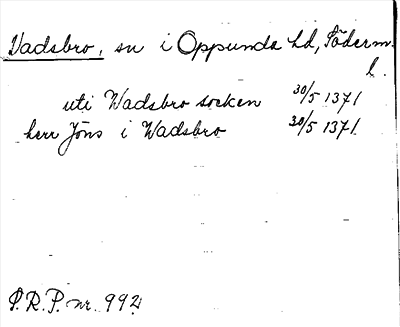 Vadsbro, sn i Oppunda hd, Söderm.
l.
uti Wadsbro socken 30/5 1371
herr Jöns i Wadsbro 30/5 1371.
S.R.P. nr. 992